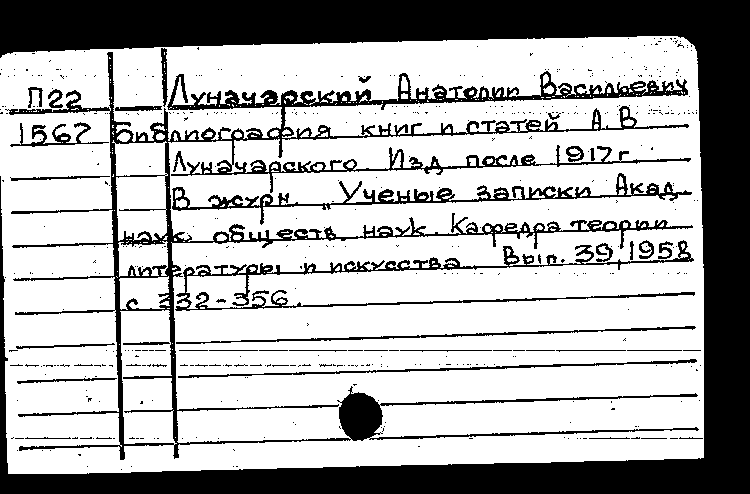 П22 Луначарский, Анатолии Васильевич
1567 Библиография книг и статей А.В
Луначарского. Изд после 1917г.
В журн. „Ученые записки Акад.
наук. обществ. наук. Кафедра теории
литературы и искусства. Вып. 39, 1958
с 332-356.